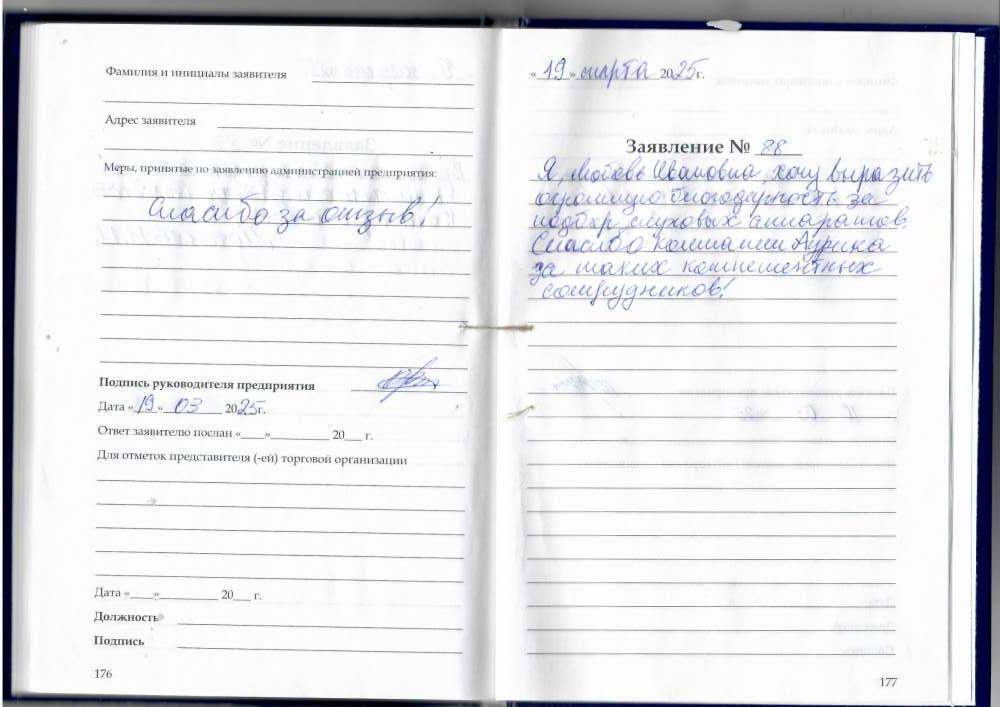 Фамилия и инициалы заявителя
Адрес заявителя
Меры, принятые по заявлению администрацией предприятия:
Спасибо за отзыв!
Подпись руководителя предприятия
Дата «19» 03 2025г.
Ответ заявителю послан «___»_________ 20___ г.
Для отметок представителя (-ей) торговой организации
Дата «___»_________ 20___ г.
Должность
Подпись
176
«19» марта 2025г.
Заявление № 88
Я, Любовь Ивановна, хочу выразить
огромную благодарность за
подбор слуховых аппаратов.
Спасибо компании Аурика
за таких компетентных
сотрудников!
177